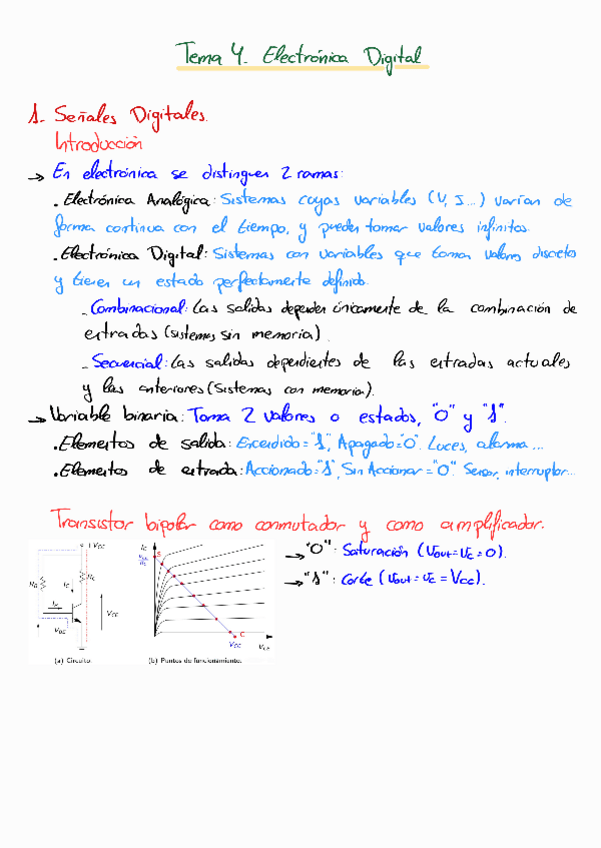 Tema 4. Electrónica Digital
1. Señales Digitales.
Introducción
→ En electrónica se distinguen 2 ramas:
. Electrónica Analógica: Sistemas cuyas variables (V, I...) varían de
forma continua con el tiempo, y pueden tomar valores infinitos.
. Electrónica Digital: Sistemas con variables que toman valores discretos
y tienen un estado perfectamente definido.
- Combinacional: Las salidas dependen únicamente de la combinación de
entradas (sistemas sin memoria).
- Secuencial: Las salidas dependientes de las entradas actuales
y las anteriores (Sistemas con memoria).
→ Variable binaria: Toma 2 valores o estados, "0" y "1".
. Elementos de salida: Encendido = "1", Apagado = "0". Luces, alarma...
. Elementos de entrada: Accionado = "1", Sin Accionar = "0". Sensor, interruptor...
Transistor bipolar como conmutador y como amplificador.
→ "0": Saturación (Vout = Vc = 0).
→ "1": Corte (Vout = Vc = Vcc).
VCC
RB
RC
IC
IB
VBE
VCC
IC
S
VCC
RC
C
VCC
VCE
(a) Circuito.
(b) Puntos de funcionamiento.